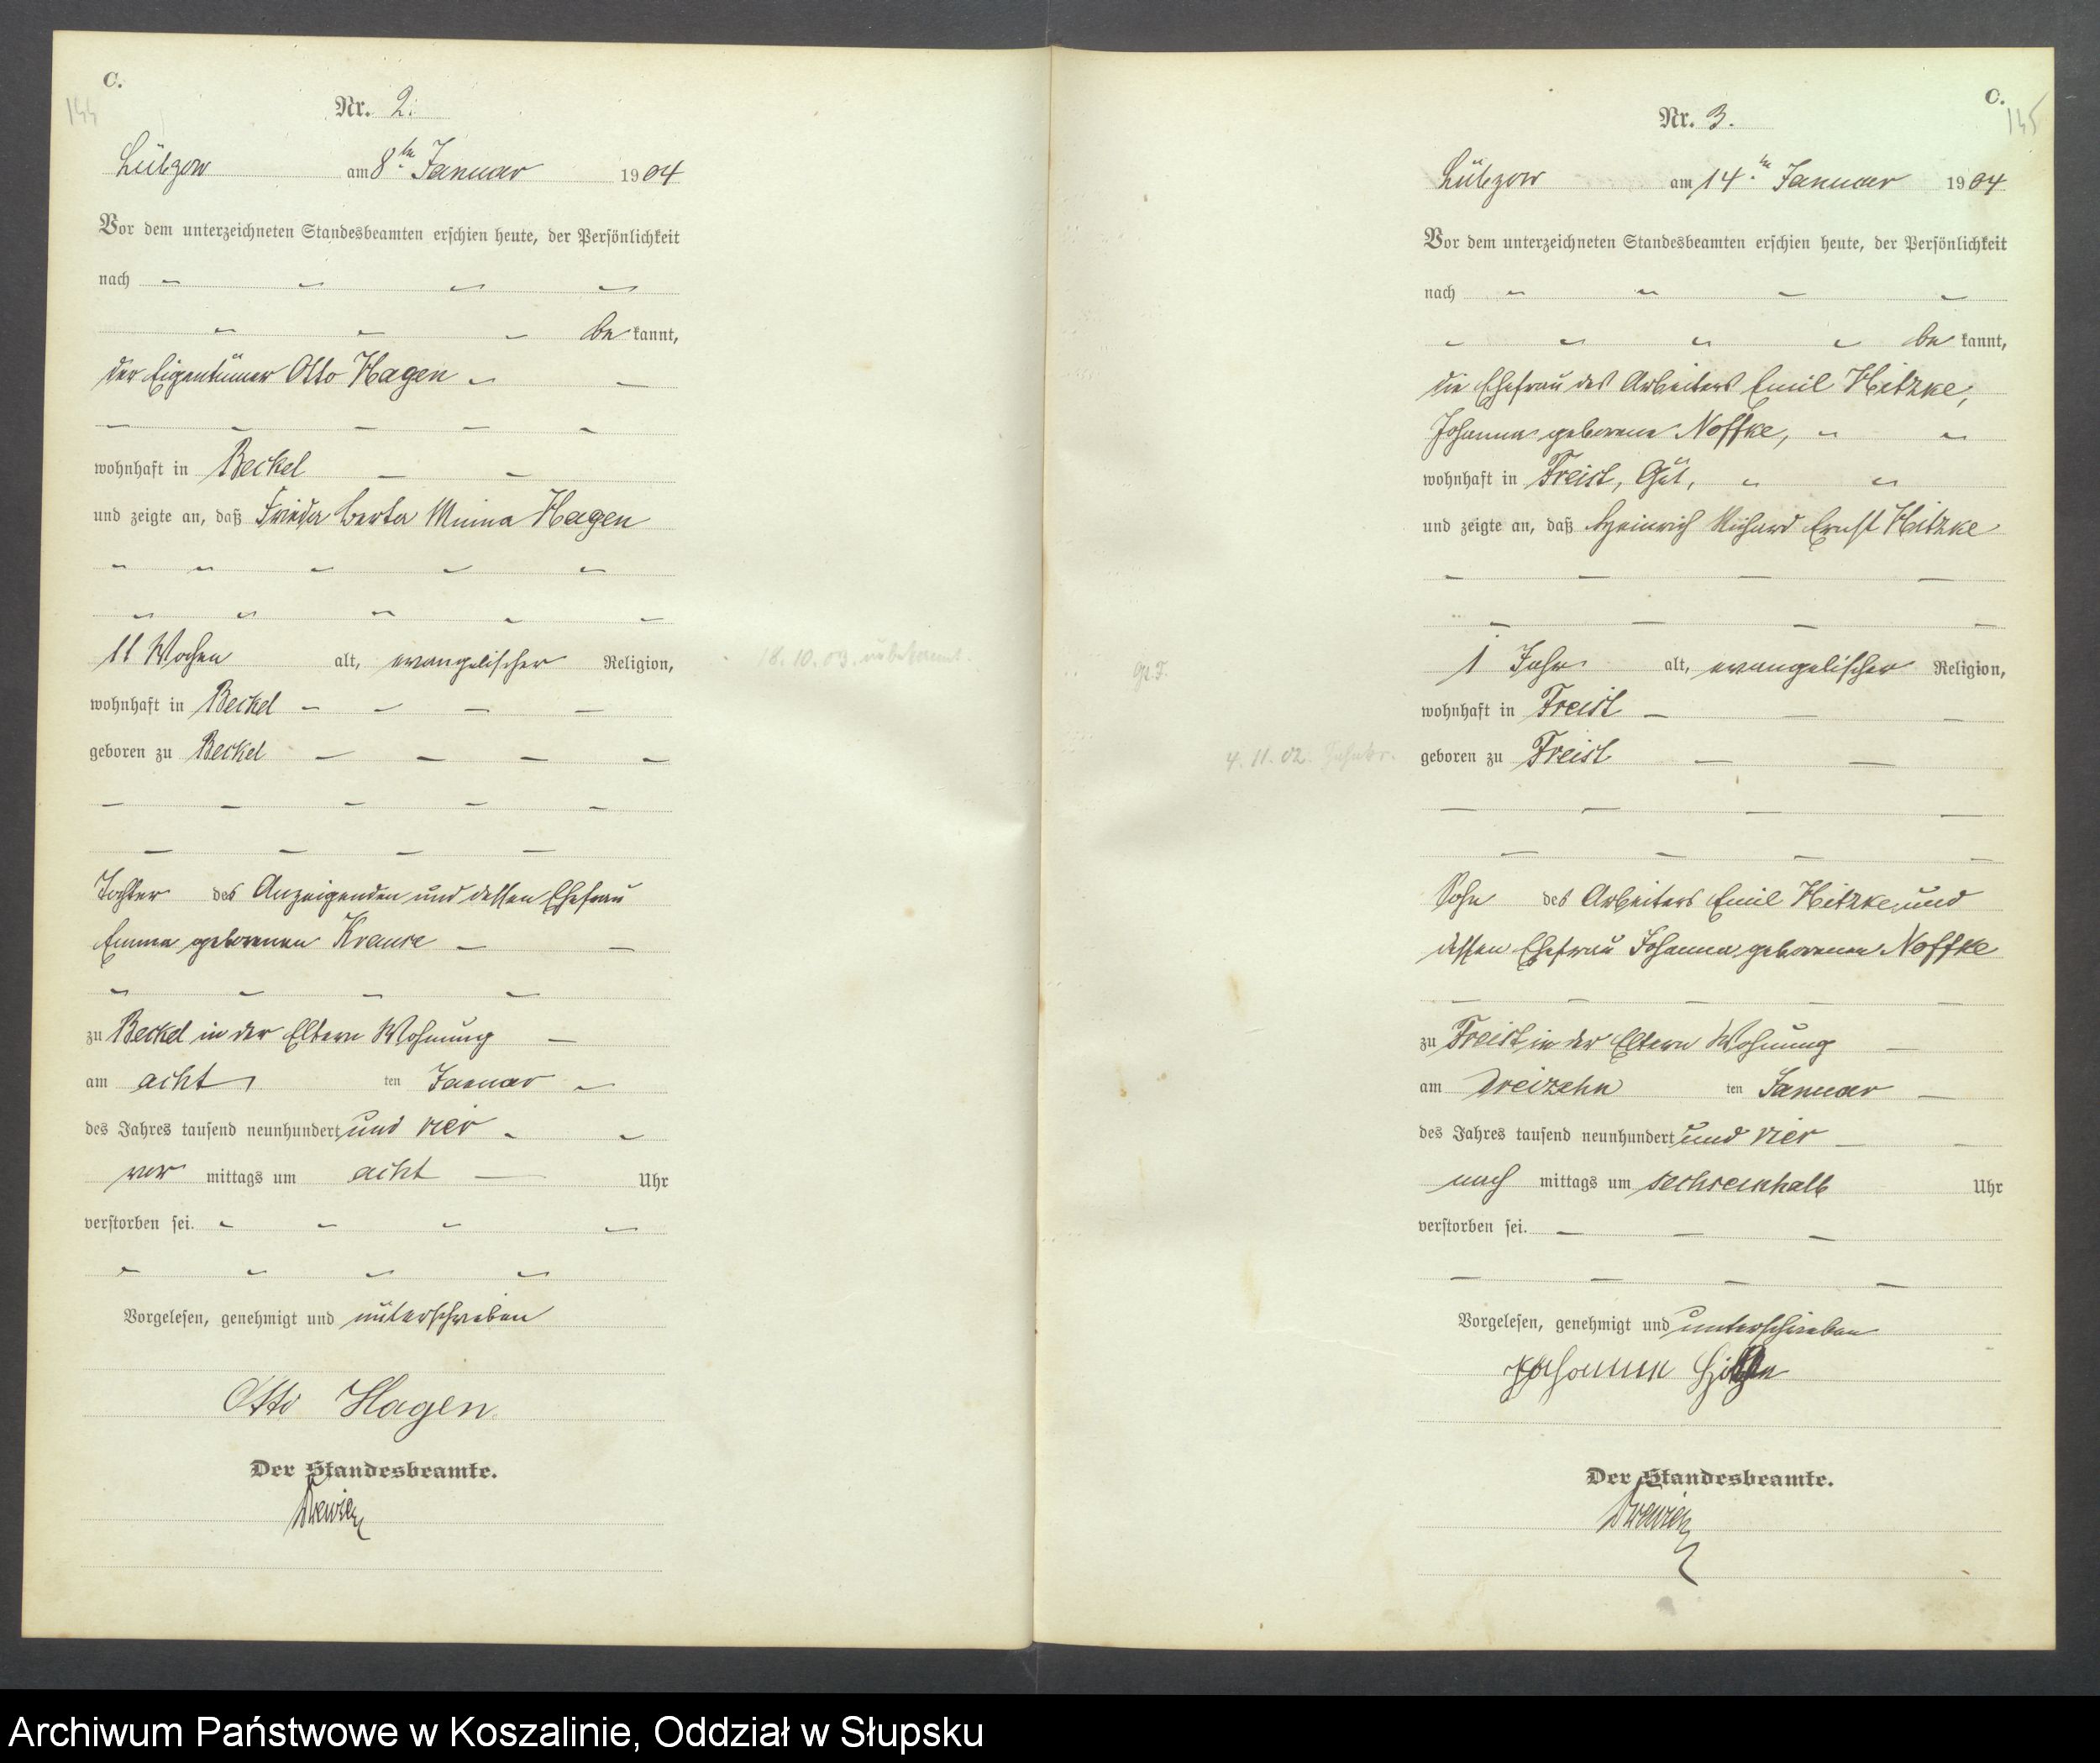 C.
144
Nr. 2.
Lübzow am 8ten Januar 1904
Vor dem unterzeichneten Standesbeamten erschien heute, der Persönlichkeit
nach
be kannt,
der Eigentümer Otto Hagen
wohnhaft in Beckel
und zeigte an, daß Frieda Berta Minna Hagen
11 Wochen alt, evangelischer Religion,
wohnhaft in Beckel
geboren zu Beckel
Tochter des Anzeigenden und dessen Ehefrau
Emma geborenen Krause
zu Beckel in der Eltern Wohnung
am acht ten Januar
des Jahres tausend neunhundert und vier
vor mittags um acht Uhr
verstorben sei.
Vorgelesen, genehmigt und unterschrieben
Otto Hagen.
Der Standesbeamte.
18.10.03. unbekannt.
C.
145
Nr. 3.
Lübzow am 14ten Januar 1904
Vor dem unterzeichneten Standesbeamten erschien heute, der Persönlichkeit
nach
be kannt,
die Ehefrau des Arbeiters Emil Hitzke,
Johanna geborene Noffke,
wohnhaft in Freist, Gut,
und zeigte an, daß Heinrich Richard Ernst Hitzke
1 Jahr alt, evangelischer Religion,
wohnhaft in Freist
4.11.02. geboren zu Freist
Sohn des Arbeiters Emil Hitzke und
dessen Ehefrau Johanna geborenen Noffke
zu Freist in der Eltern Wohnung
am dreizehn ten Januar
des Jahres tausend neunhundert und vier
nach mittags um sechseinhalb Uhr
verstorben sei.
Vorgelesen, genehmigt und unterschrieben
Johanna Hitzke
Der Standesbeamte.
Archiwum Państwowe w Koszalinie, Oddział w Słupsku